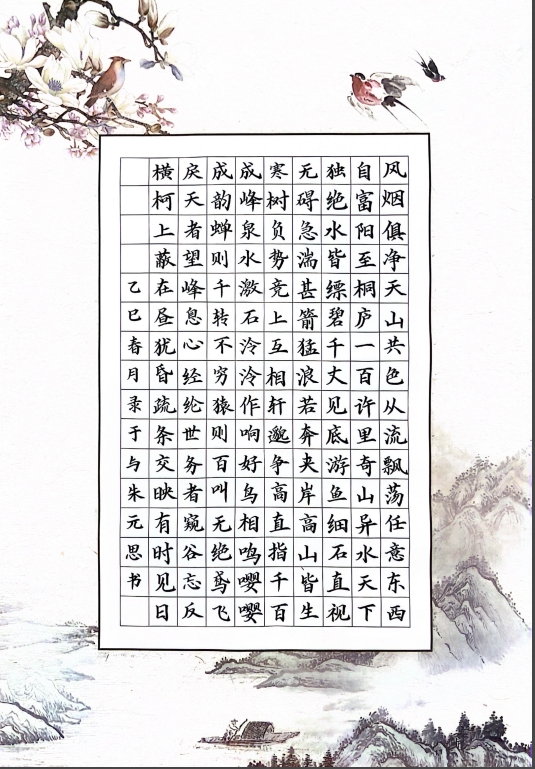 风烟俱净天山共色从流飘荡任意东西
自富阳至桐庐一百许里奇山异水天下
独绝水皆缥碧千丈见底游鱼细石直视
无碍急湍甚箭猛浪若奔夹岸高山皆生
寒树负势竞上互相轩邈争高直指千百
成峰泉水激石泠泠作响好鸟相鸣嘤嘤
成韵蝉则千转不穷猿则百叫无绝鸢飞
戾天者望峰息心经纶世务者窥谷忘反
横柯上蔽在昼犹昏疏条交映有时见日
乙巳春月录于与朱元思书